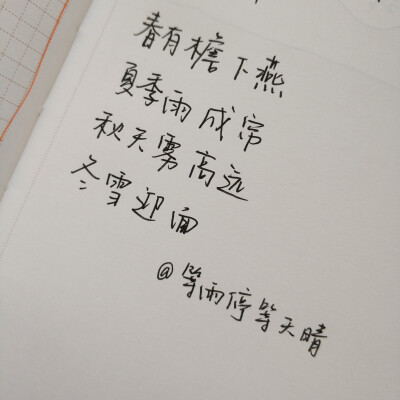 春有檐下燕
夏季雨成帘
秋天雾高远
冬雪迎面
@等雨停等天晴